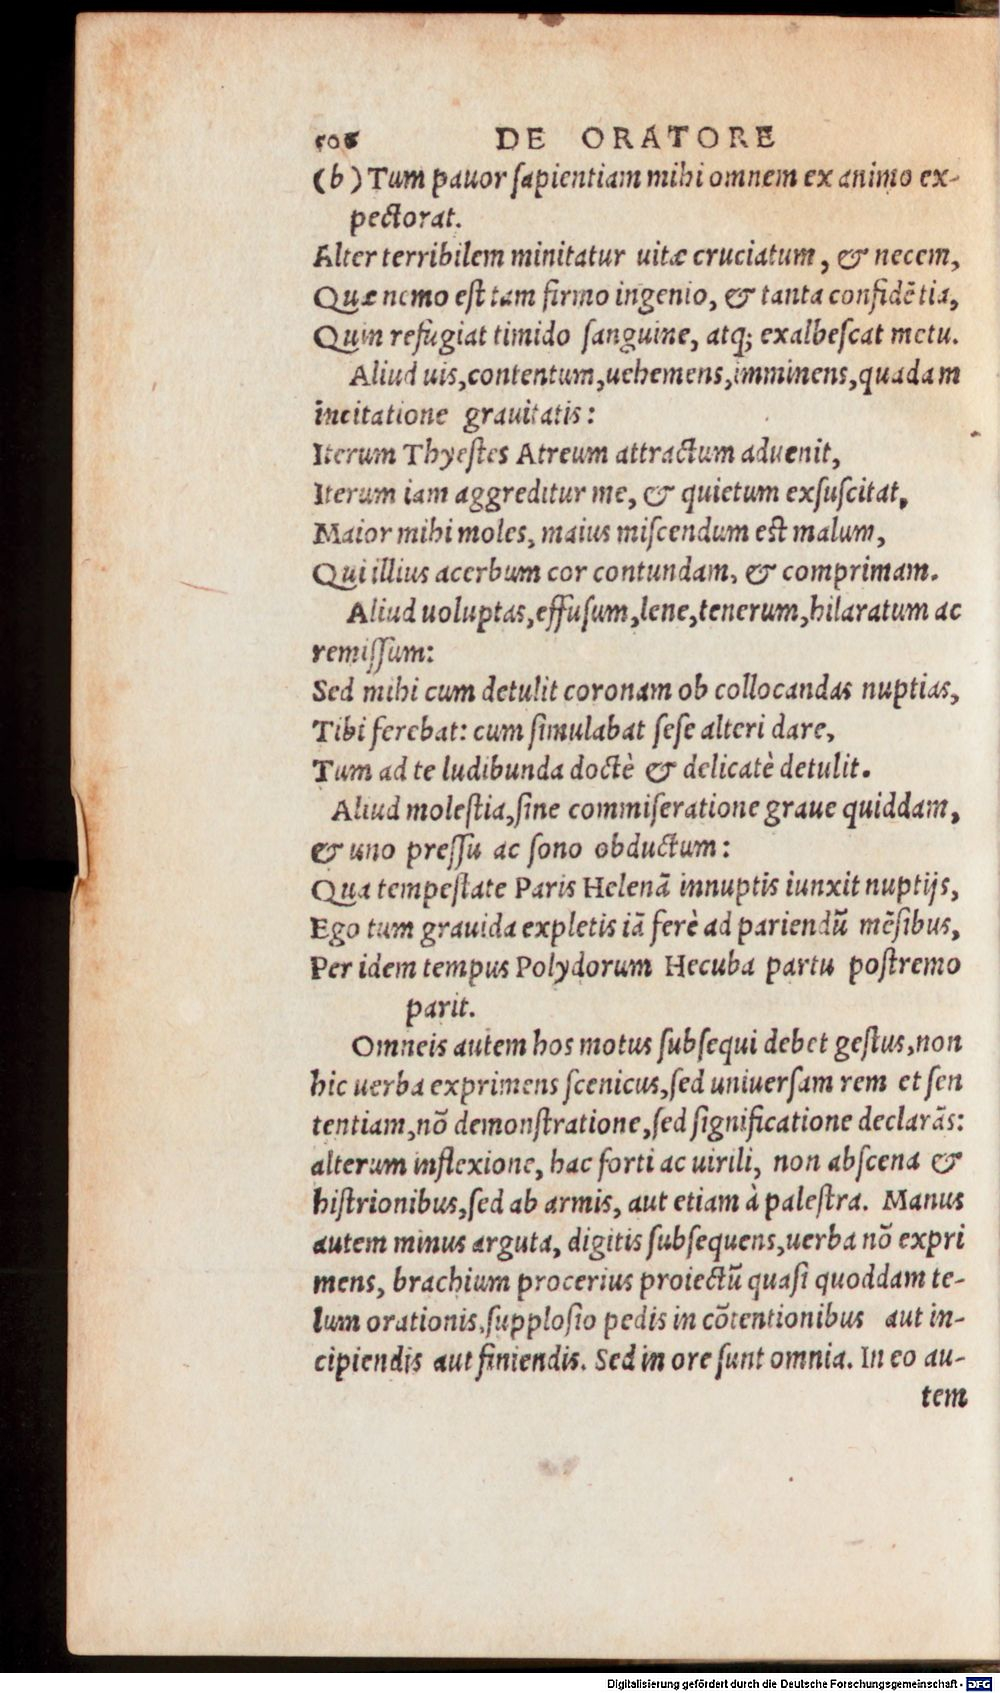 508 DE ORATORE
(b) Tum pauor sapientiam mihi omnem ex animo ex-
pectorat.
Alter terribilem minitatur uitæ cruciatum, & necem,
Quæ nemo est tam firmo ingenio, & tanta confidẽtia,
Quin refugiat timido sanguine, atq; exalbescat metu.
Aliud uis, contentum, uehemens, imminens, quadam
incitatione grauitatis:
Iterum Thyestes Atreum attractum aduenit,
Iterum iam aggreditur me, & quietum exsuscitat,
Maior mihi moles, maius miscendum est malum,
Qui illius acerbum cor contundam, & comprimam.
Aliud uoluptas, effusum, lene, tenerum, hilaratum ac
remissum:
Sed mihi cum detulit coronam ob collocandas nuptias,
Tibi ferebat: cum simulabat sese alteri dare,
Tum ad te ludibunda doctè & delicatè detulit.
Aliud molestia, sine commiseratione graue quiddam,
& uno pressu ac sono obductum:
Qua tempestate Paris Helenã innuptis iunxit nuptijs,
Ego tum grauida expletis iã ferè ad pariendũ mẽsibus,
Per idem tempus Polydorum Hecuba partu postremo
parit.
Omneis autem hos motus subsequi debet gestus, non
hic uerba exprimens scenicus, sed uniuersam rem et sen
tentiam, nõ demonstratione, sed significatione declarãs:
alterum inflexione, hac forti ac uirili, non abscena &
histrionibus, sed ab armis, aut etiam à palestra. Manus
autem minus arguta, digitis subsequens, uerba nõ expri
mens, brachium procerius proiectũ quasi quoddam te-
lum orationis, supplosio pedis in cõtentionibus aut in-
cipiendis aut finiendis. Sed in ore sunt omnia. In eo au-
tem
Digitalisierung gefördert durch die Deutsche Forschungsgemeinschaft - DFG